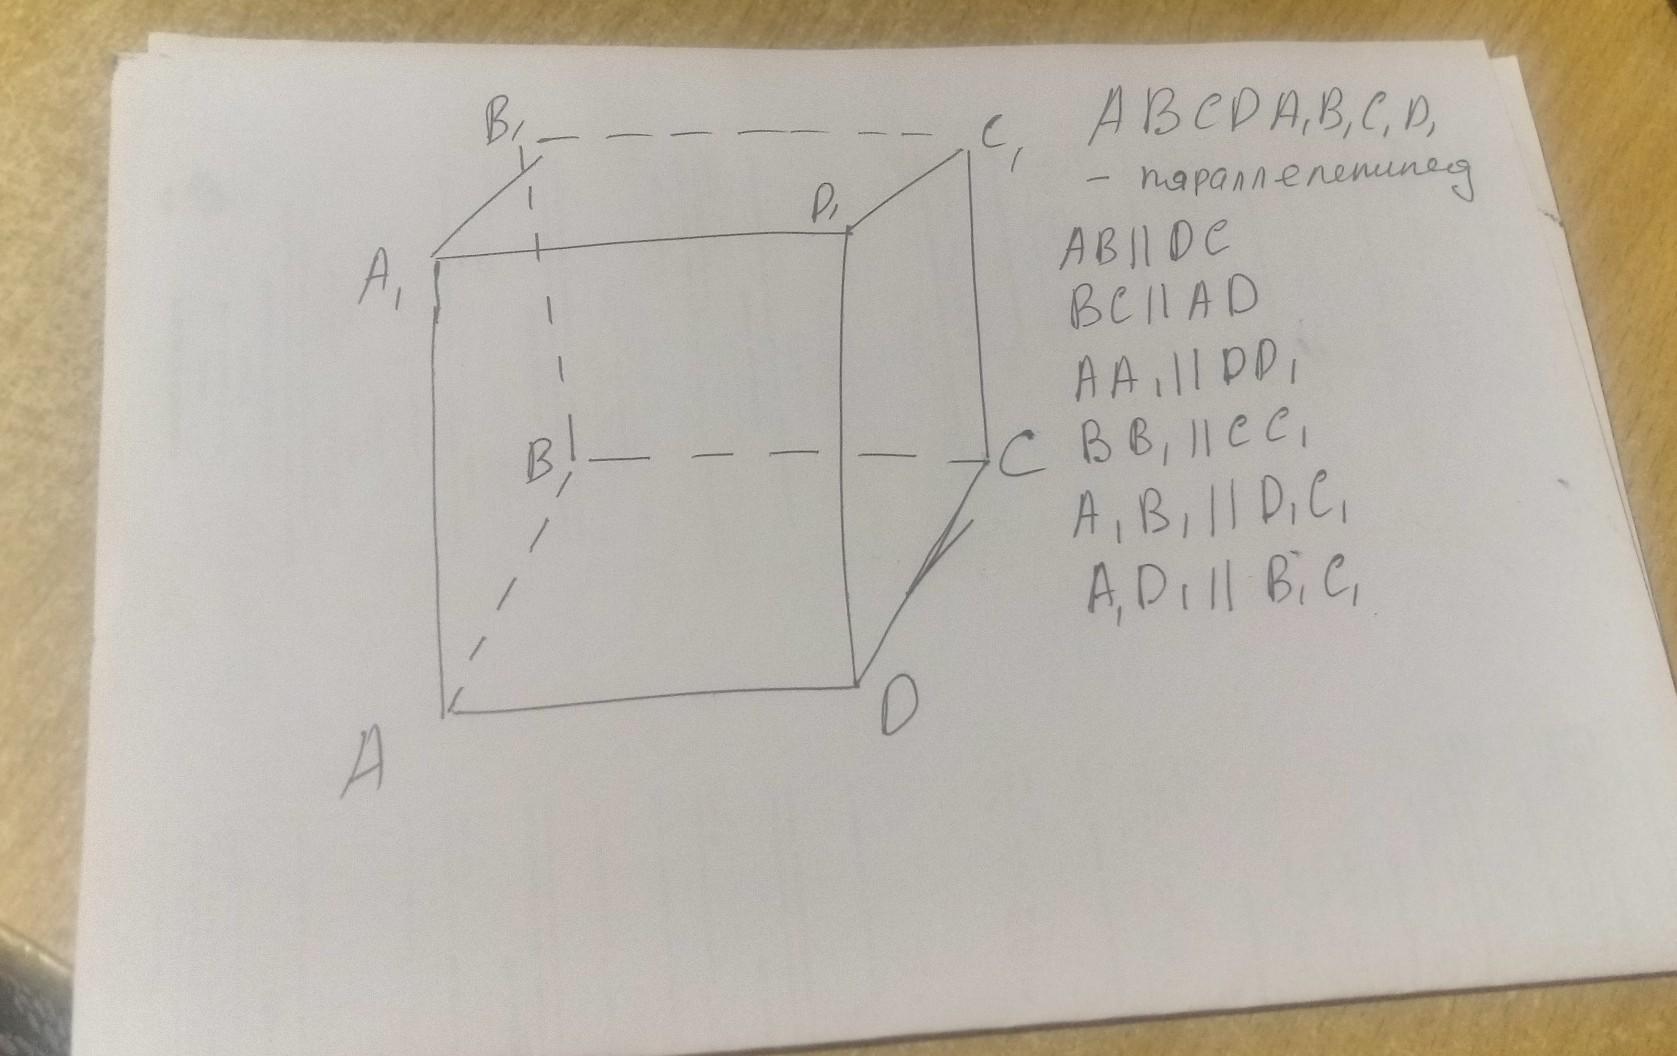 B₁
C₁
D₁
A₁
B
C
A
D
ABCDA₁B₁C₁D₁
- параллелепипед
AB || DC
BC || AD
AA₁ || DD₁
BB₁ || CC₁
A₁B₁ || D₁C₁
A₁D₁ || B₁C₁